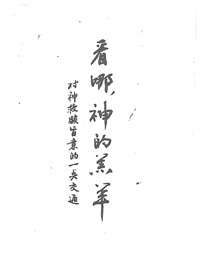 看哪,神的羔羊
对神救赎旨意的一点交通